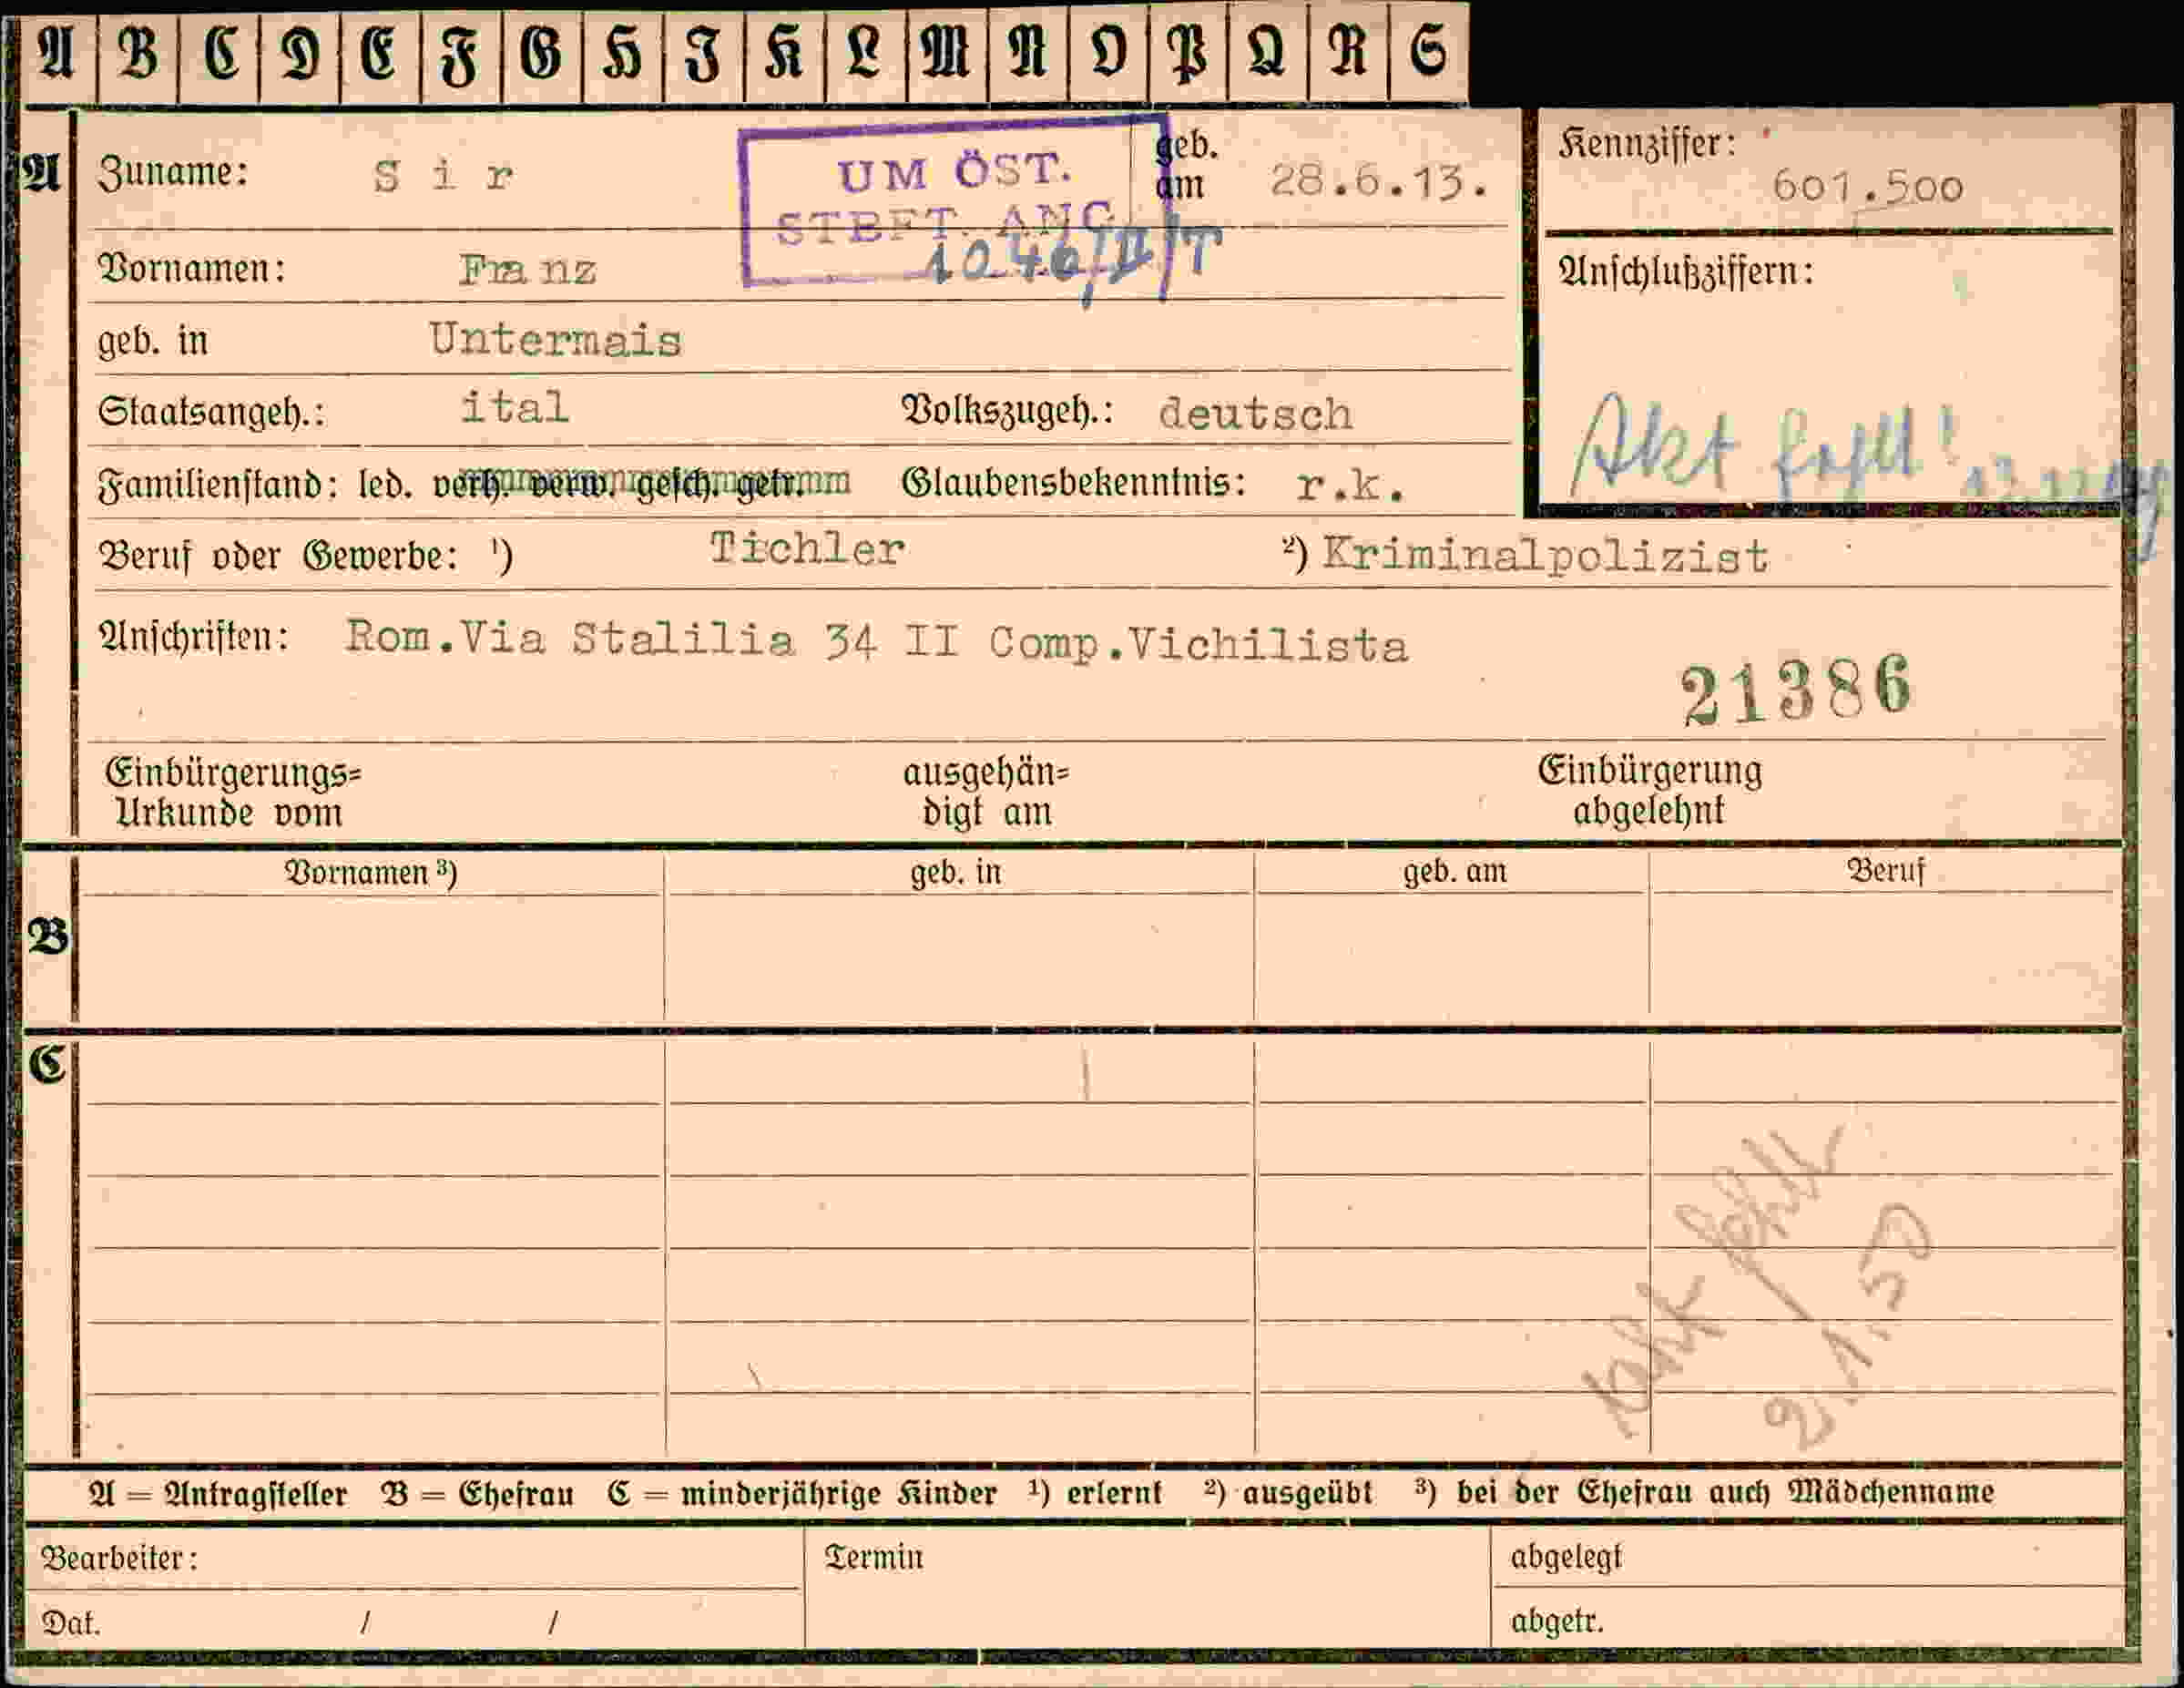 A B C D E F G H I K L M N O P Q R S
A Zuname: Sir geb. am 28.6.13.
UM ÖST.
STBFT. ANG.
1046/II/T
Kennziffer: 601.500
Vornamen: Franz
Anschlußziffern:
geb. in Untermais
Staatsangeh.: ital Volkszugeh.: deutsch
Akt fehlt!
Familienstand: led. verh. verw. gesch. getr. Glaubensbekenntnis: r.k.
Beruf oder Gewerbe: ¹) Tichler ²) Kriminalpolizist
Anschriften: Rom.Via Stalilia 34 II Comp.Vichilista
21386
Einbürgerungs= ausgehän= Einbürgerung
Urkunde vom digt am abgelehnt
Vornamen ³) geb. in geb. am Beruf
B
C
Akt fehlt
2.1.50
A = Antragsteller B = Ehefrau C = minderjährige Kinder ¹) erlernt ²) ausgeübt ³) bei der Ehefrau auch Mädchenname
Bearbeiter: Termin abgelegt
Dat. / / abgetr.